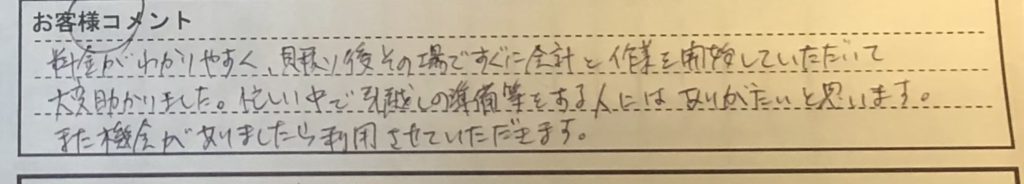 お客様コメント
料金がわかりやすく、見積り後その場ですぐに会計と作業を開始していただいて
大変助かりました。忙しい中で引越しの準備等をする人にはありがたいと思います。
また機会がありましたら利用させていただきます。